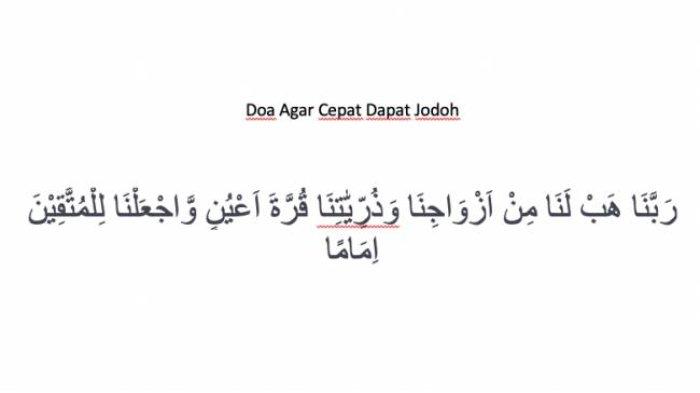 Doa Agar Cepat Dapat Jodoh
رَبَّنَا هَبْ لَنَا مِنْ اَزْوَاجِنَا وَذُرِّيّٰتِنَا قُرَّةَ اَعْيُنٍ وَّاجْعَلْنَا لِلْمُتَّقِيْنَ
اِمَامًا